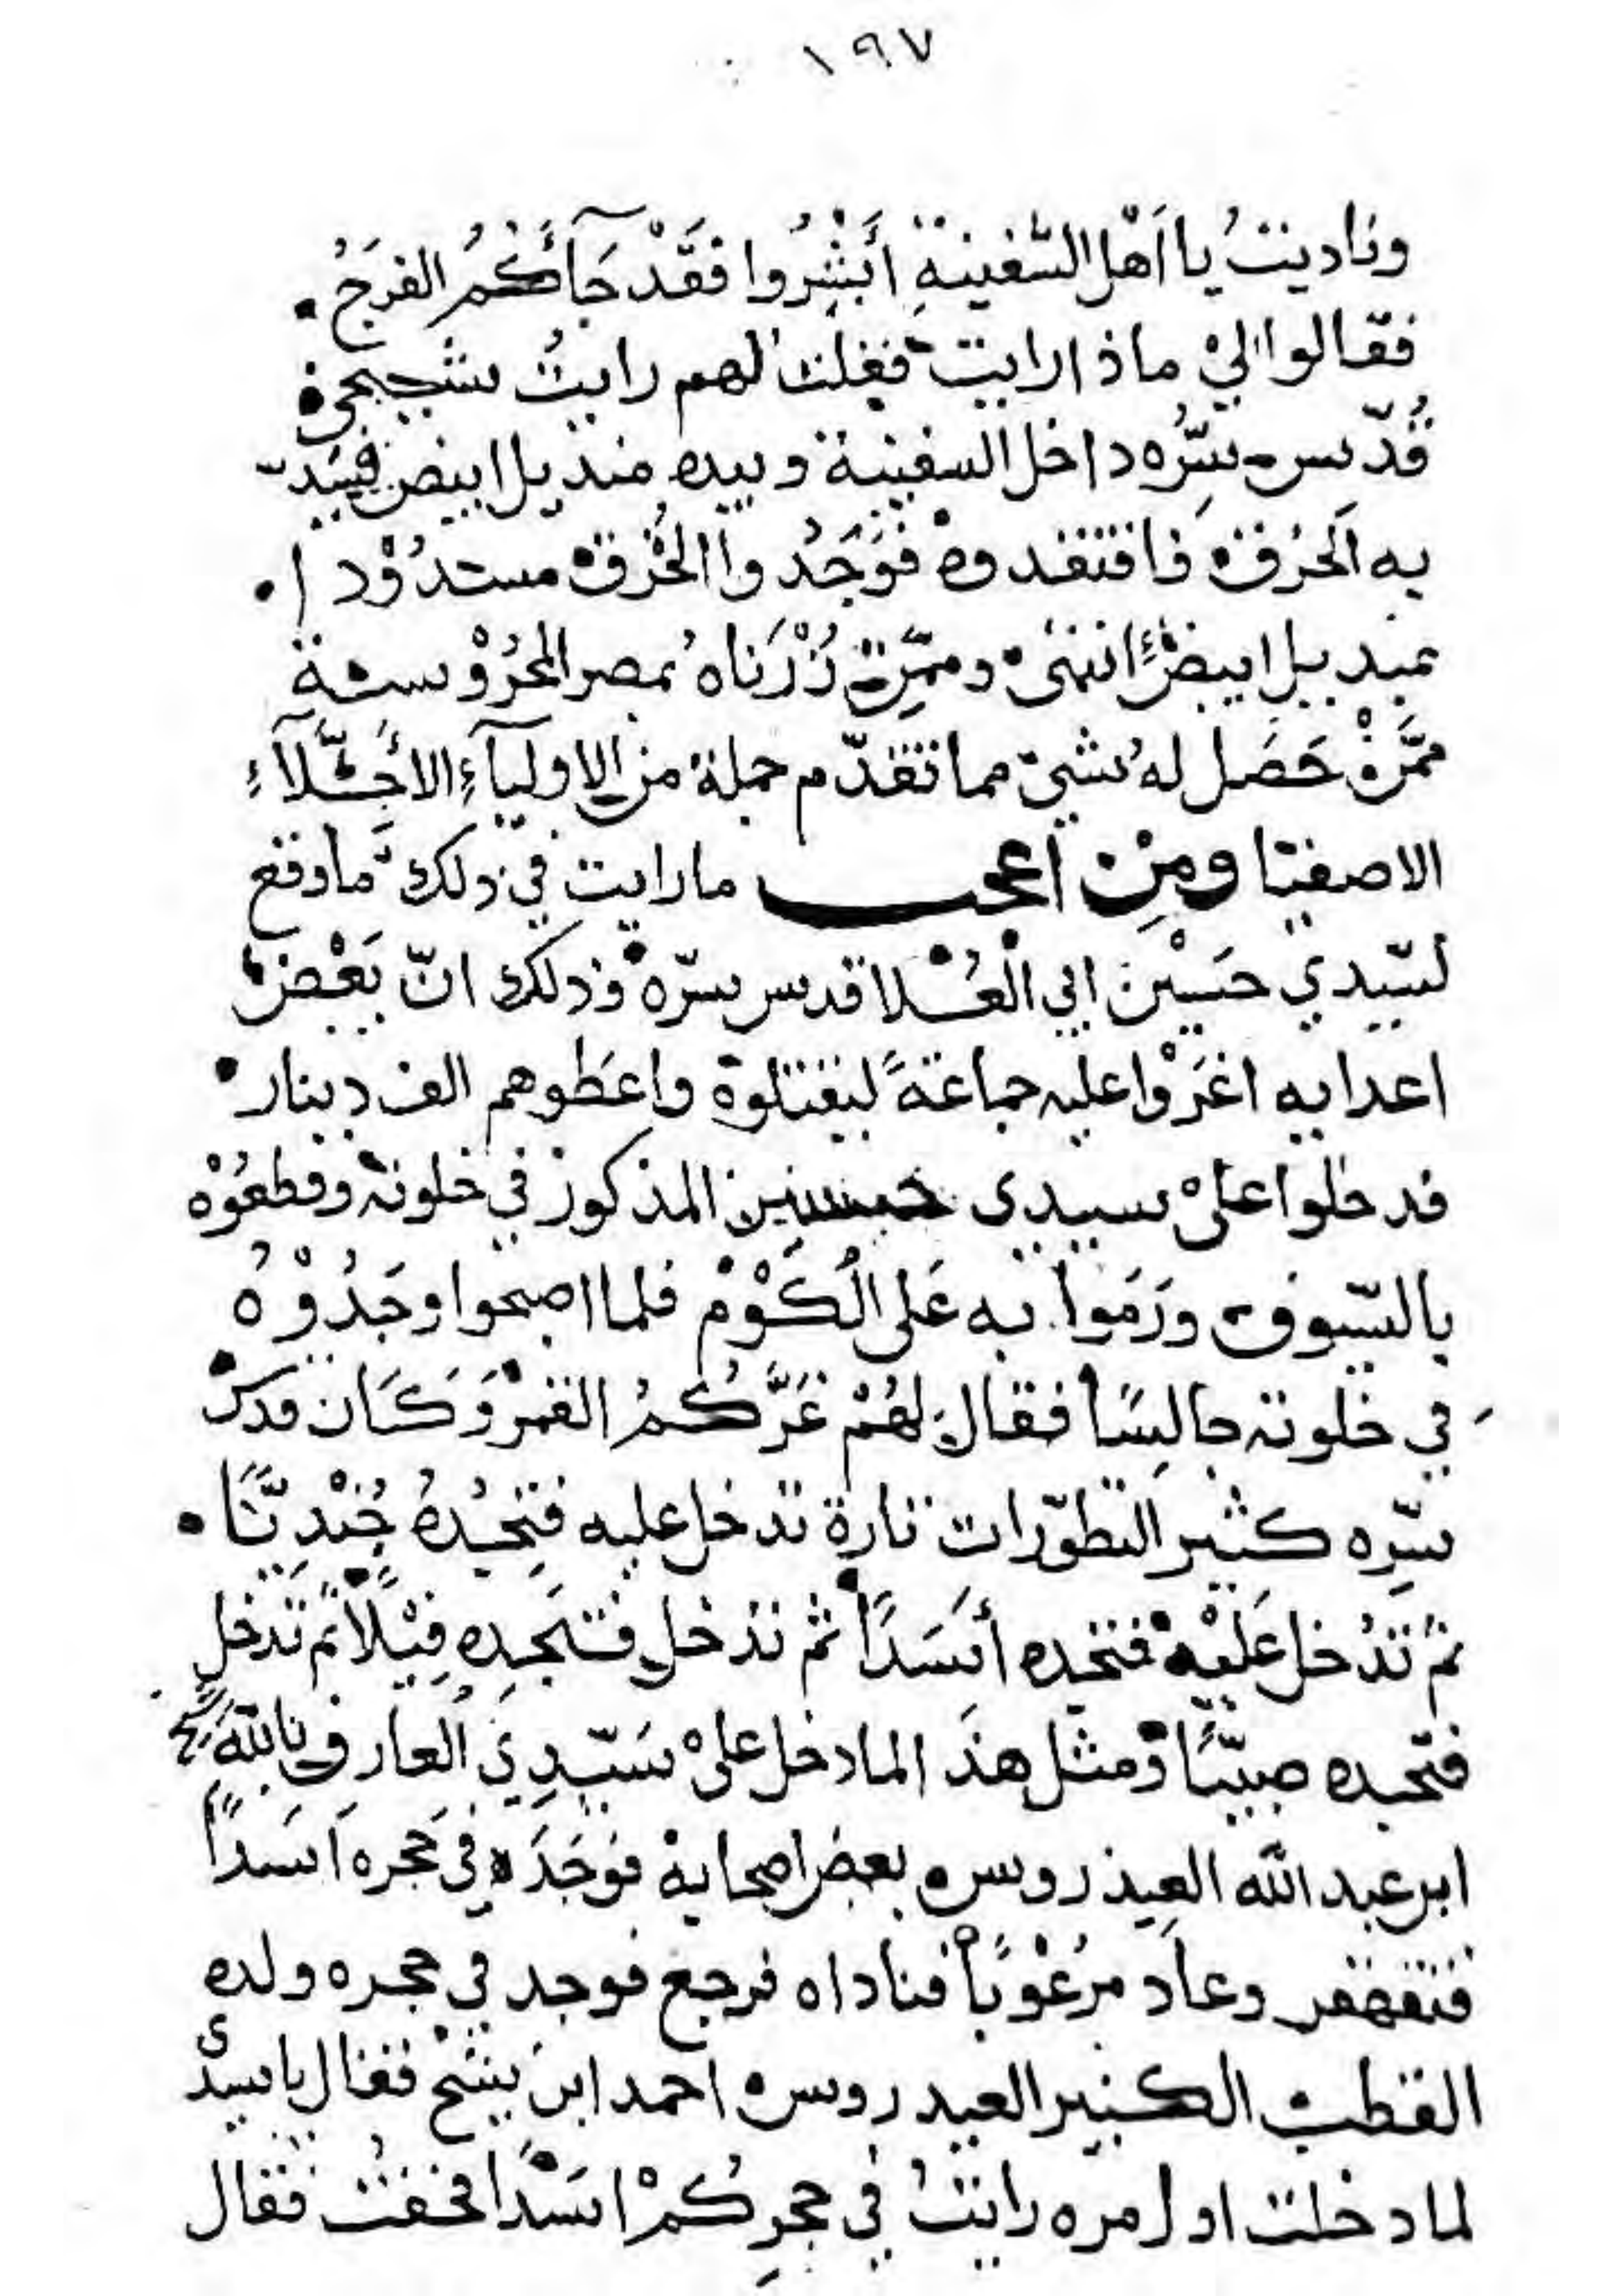 ١٩٧
وناديتُ يا اَهْل السَّفينةِ أَبْشِرُوا فَقَدْ جَآءَكُمُ الفَرَجُ .
فقالوا لي ماذا رايت فقلت لهم رايتُ شيخي
قُدّس سِرُّه داخل السفينة وبيده منديل ابيض فيسَدّ
به الخرق فافتقدوه فوَجَدُوا الخرق مسدُوْدا .
بمنديل ابيض انتهى وممّن زُرْنَاهُ بمصر المحرُوْسة
ممَّنْ حَصَل له شيئ مما تقدّم جملة من الاوليآءِ الاَجِلّآءِ
الاصفيا ومِن اعجب ما رايت في ذلك ما وقع
لسيّدي حسَيْن ابي العُلا قدس سرّه وذلك انّ بَعْض
اعدايه اغرَوْا عليه جماعةً ليقتلوه واعطوهم الف دينار
فدخلوا على سيدي حسين المذكور في خلوته وقطعُوْه
بالسّيوف ورَمَوا به عَلى الكَوْم فلما اصبحوا وجَدُوْهُ
في خلوته جالِسًا فقال لهُمْ غَرَّكُمُ القمرُ وَكَان قدس
سِرّه كثير التطوّرات تارة تدخل عليه فتجِدُهُ جُنْدِيًّا .
ثم تدْخل عَلَيْه فتجده أسَدًا ثم تدخل فتجِده فِيْلًا ثم تدخل
فتجده صبيّا ومثل هذا لما دخل على سَيّدِي العارف بالله
ابو عبد الله العيدروس بعض اصحابه فوَجَدَه في حَجره اَسَداً
فتقهقر وعاد مرْعُوْبًا فناداه فرجع فوجد في حجره ولده
القطب الكبير العيدروس احمد ابن شيخ فقال يا سيدى
لما دخلت اول مره رايتُ في حجرِكُمْ اسَدًا فخفت فقال